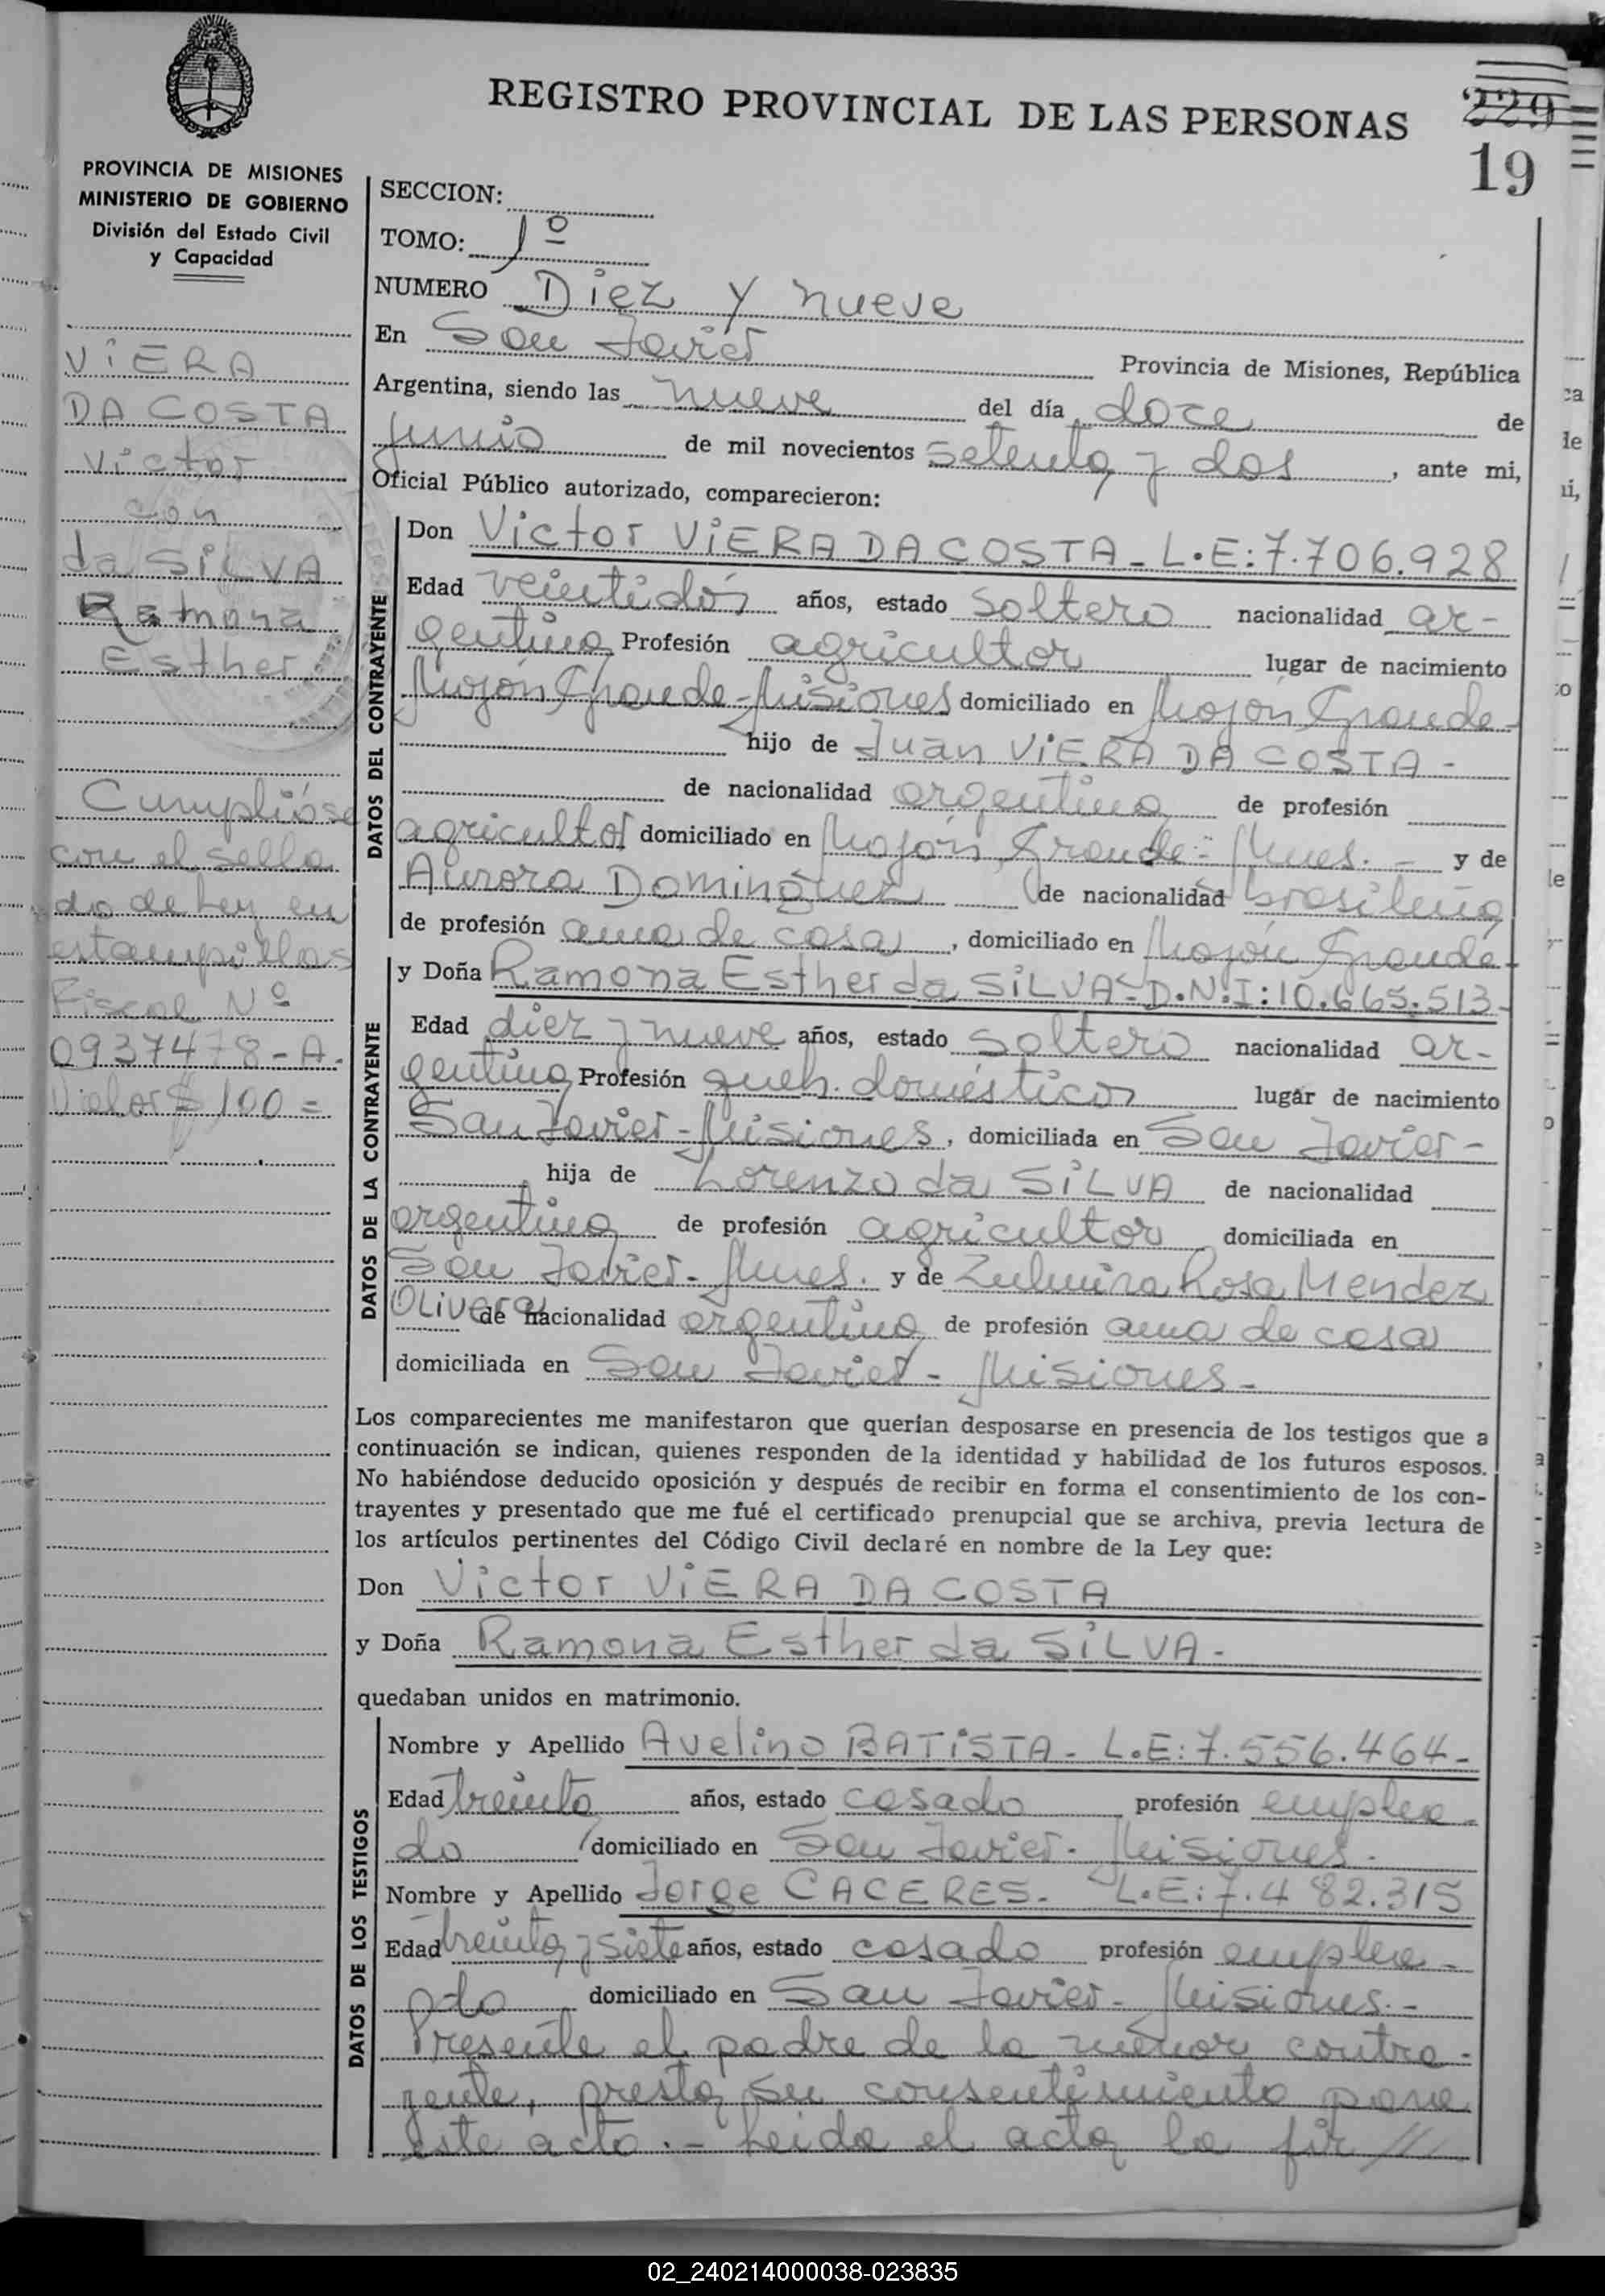 REGISTRO PROVINCIAL DE LAS PERSONAS
229
19
PROVINCIA DE MISIONES
MINISTERIO DE GOBIERNO
División del Estado Civil
y Capacidad
VIERA
DA COSTA
Victor
con
da SILVA
Ramona
Esther
Cumplióse
con el sella
do de Ley en
estampillas
Fiscal Nº
0937478-A.
Valor $ 100=
SECCION:
TOMO: 1º
NUMERO Diez y nueve
En San Javier Provincia de Misiones, República
Argentina, siendo las nueve del día doce de
junio de mil novecientos setenta y dos, ante mi,
Oficial Público autorizado, comparecieron:
DATOS DEL CONTRAYENTE
Don Victor VIERA DA COSTA - L.E: 7.706.928
Edad veintidós años, estado soltero nacionalidad ar-
gentina Profesión agricultor lugar de nacimiento
Mojón Grande - Misiones domiciliado en Mojón Grande-
hijo de Juan VIERA DA COSTA -
de nacionalidad argentina de profesión
agricultor domiciliado en Mojón Grande - Mnes. - y de
Aurora Dominguez de nacionalidad brasileña
de profesión ama de casa, domiciliado en Mojón Grande-
DATOS DE LA CONTRAYENTE
y Doña Ramona Esther da SILVA - D.N.I: 10.665.513-
Edad diez y nueve años, estado soltera nacionalidad ar-
gentina Profesión queh. domésticos lugar de nacimiento
San Javier - Misiones, domiciliada en San Javier -
hija de Lorenzo da SILVA de nacionalidad
argentina de profesión agricultor domiciliada en
San Javier - Mnes. y de Zulmira Rosa Mendez
Olivera de nacionalidad argentina de profesión ama de casa
domiciliada en San Javier - Misiones -
Los comparecientes me manifestaron que querían desposarse en presencia de los testigos que a
continuación se indican, quienes responden de la identidad y habilidad de los futuros esposos.
No habiéndose deducido oposición y después de recibir en forma el consentimiento de los con-
trayentes y presentado que me fué el certificado prenupcial que se archiva, previa lectura de
los artículos pertinentes del Código Civil declaré en nombre de la Ley que:
Don Victor VIERA DA COSTA
y Doña Ramona Esther da SILVA -
quedaban unidos en matrimonio.
DATOS DE LOS TESTIGOS
Nombre y Apellido Avelino BATISTA - L.E: 7.556.464-
Edad treinta años, estado casado profesión emplea-
do domiciliado en San Javier - Misiones -
Nombre y Apellido Jorge CACERES - L.E: 7.482.315
Edad treinta y siete años, estado casado profesión emplea-
do domiciliado en San Javier - Misiones. -
Presente el padre de la menor contra-
yente, presta su consentimiento para
este acto. - Leida el acta la fir //
02_240214000038-023835